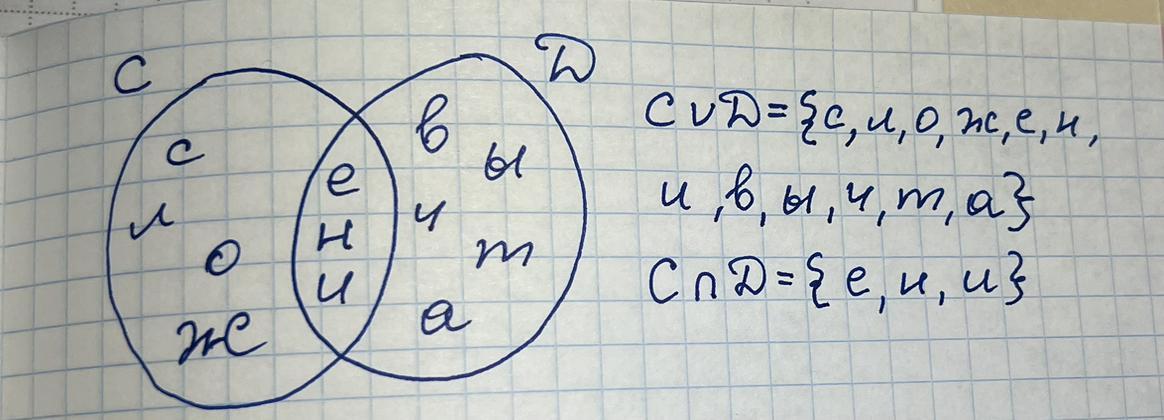 С
D
с
л
о
ж
е
н
и
в
ы
ч
т
а
C∪D={с, л, о, ж, е, н,
и, в, ы, ч, т, а}
C∩D={е, н, и}